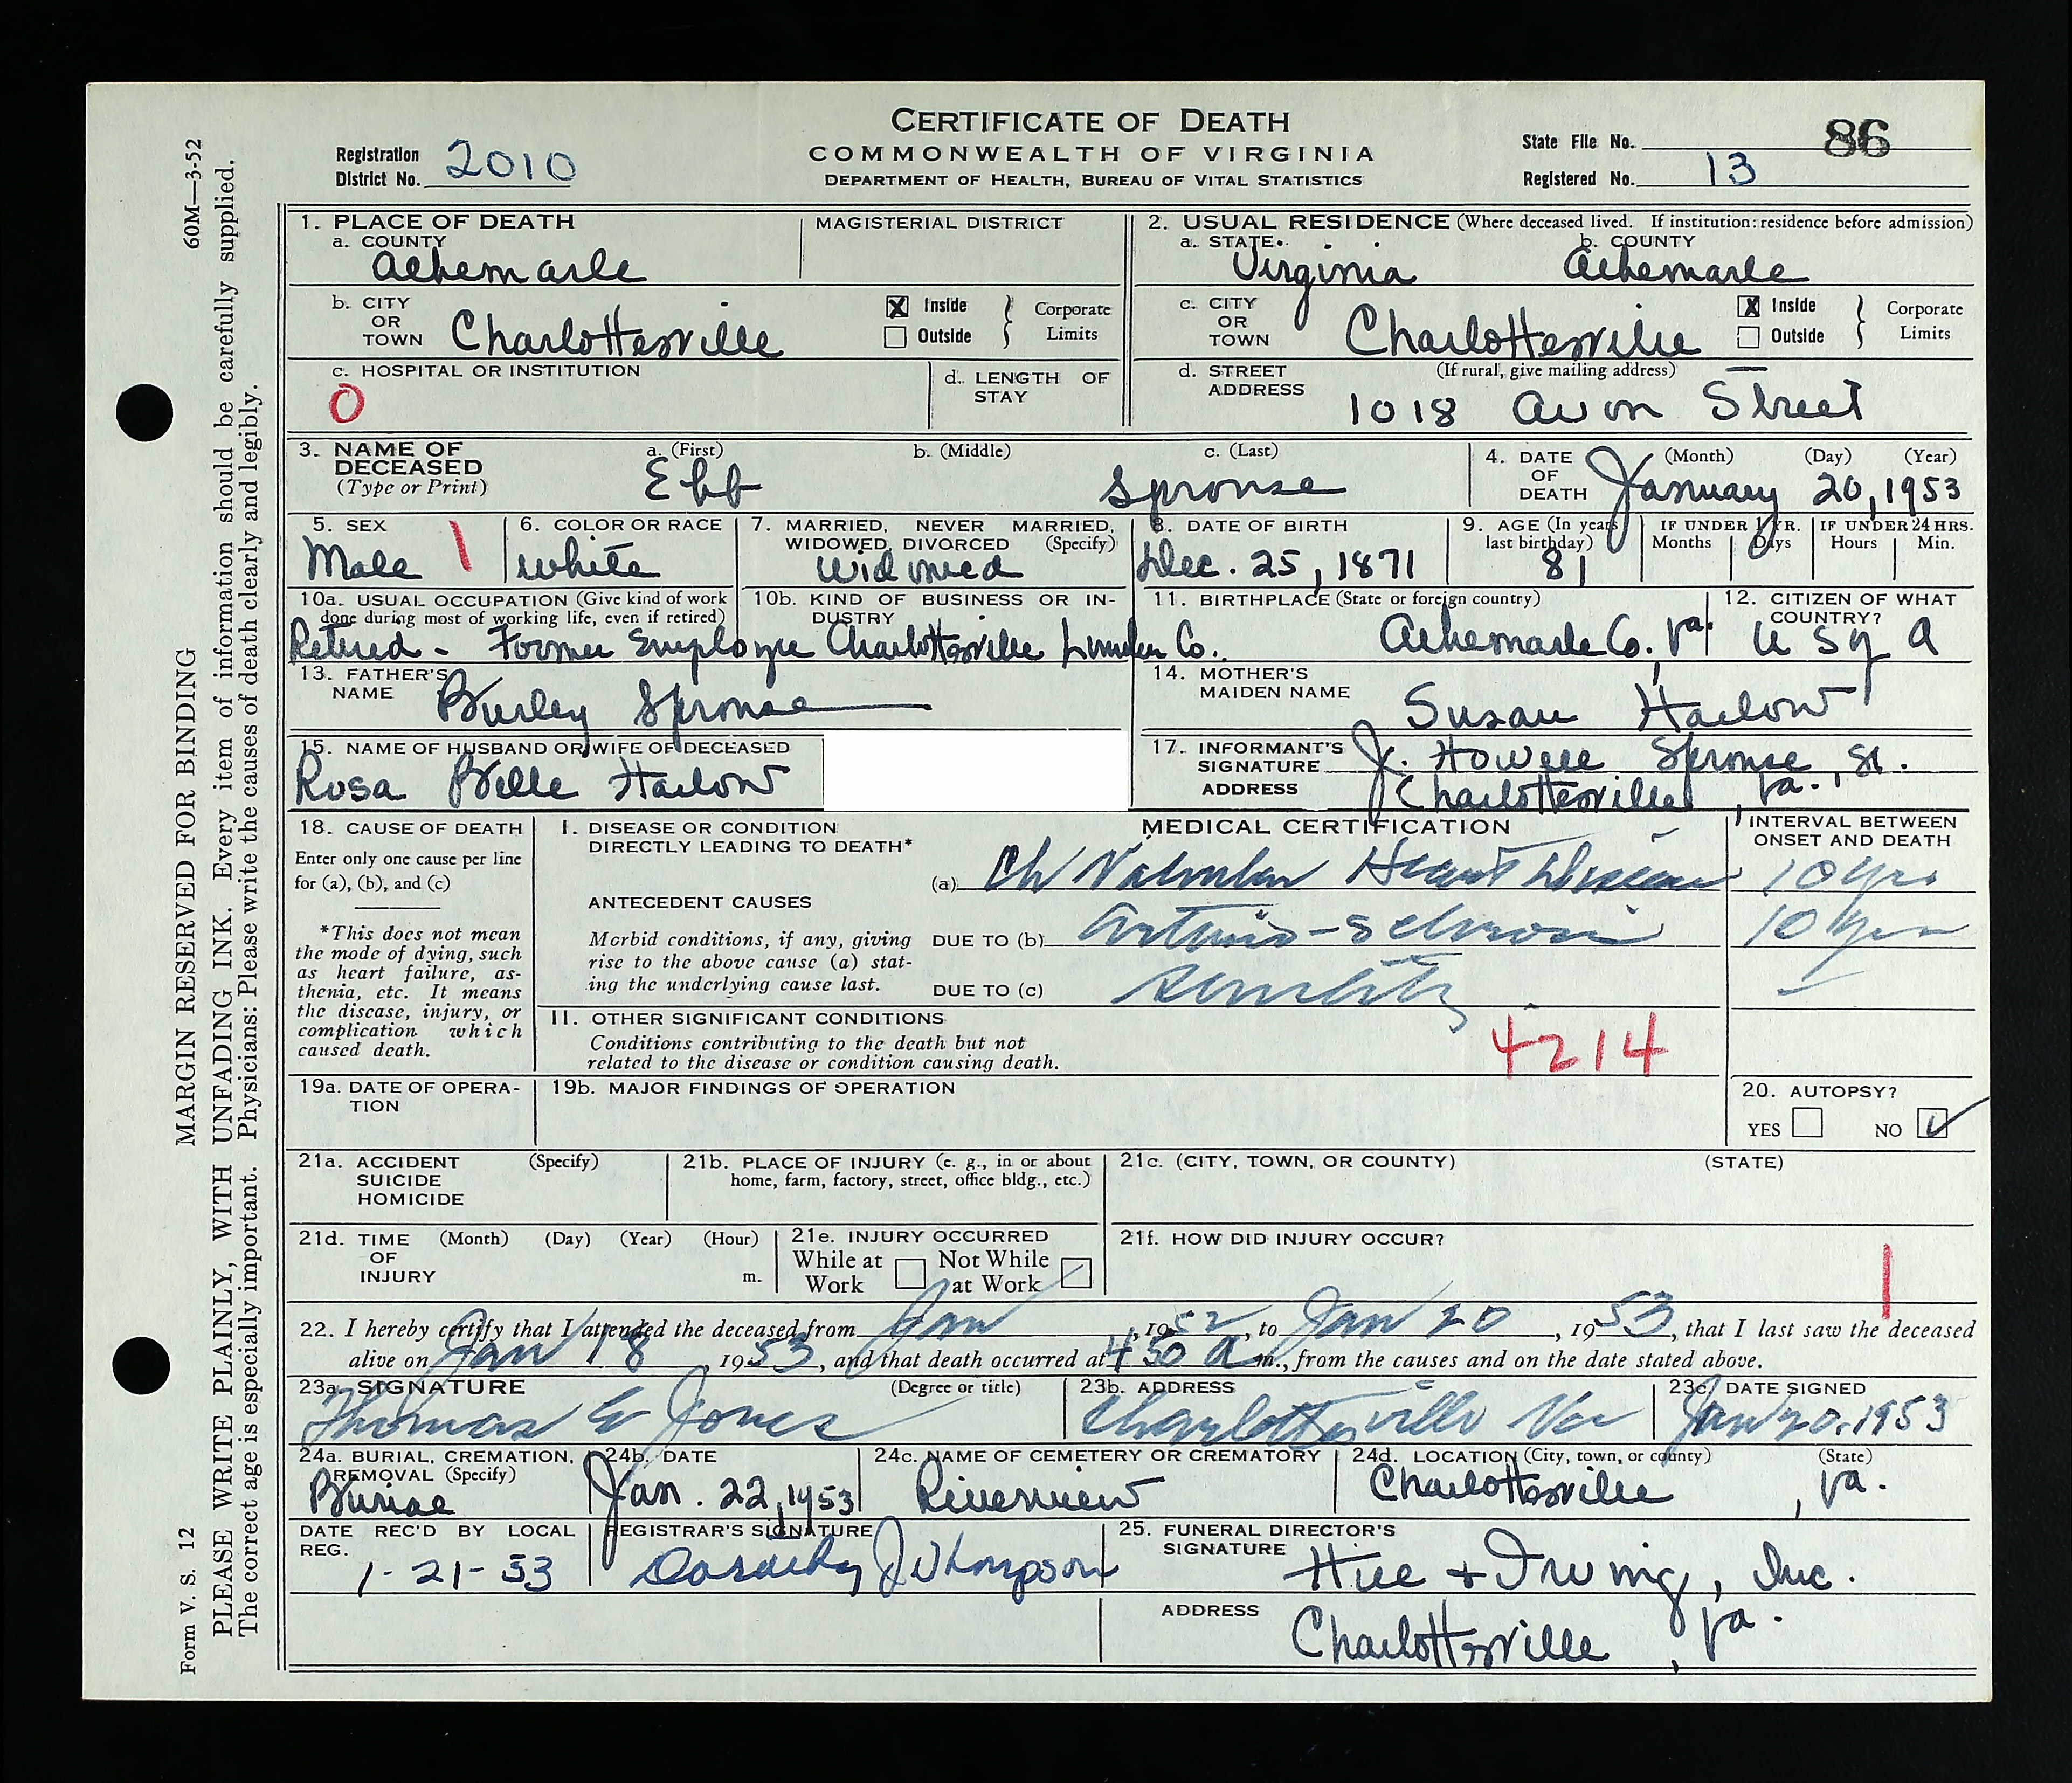 CERTIFICATE OF DEATH
COMMONWEALTH OF VIRGINIA
DEPARTMENT OF HEALTH, BUREAU OF VITAL STATISTICS
Registration District No. 2010
State File No. 86
Registered No. 13
60M—3-52
MARGIN RESERVED FOR BINDING
PLEASE WRITE PLAINLY, WITH UNFADING INK. Every item of information should be carefully supplied.
The correct age is especially important. Physicians: Please write the causes of death clearly and legibly.
Form V. S. 12
1. PLACE OF DEATH
a. COUNTY Albemarle
MAGISTERIAL DISTRICT
b. CITY OR TOWN Charlottesville
X Inside
Outside
} Corporate Limits
c. HOSPITAL OR INSTITUTION
0
d. LENGTH OF STAY
2. USUAL RESIDENCE (Where deceased lived. If institution: residence before admission)
a. STATE Virginia
b. COUNTY Albemarle
c. CITY OR TOWN Charlottesville
X Inside
Outside
} Corporate Limits
d. STREET ADDRESS (If rural, give mailing address)
1018 Avon Street
3. NAME OF DECEASED (Type or Print)
a. (First) b. (Middle) c. (Last)
Ebb Sprouse
4. DATE OF DEATH (Month) (Day) (Year)
January 20, 1953
5. SEX
Male 1
6. COLOR OR RACE
White
7. MARRIED, NEVER MARRIED, WIDOWED, DIVORCED (Specify)
Widowed
8. DATE OF BIRTH
Dec. 25, 1871
9. AGE (In years last birthday)
81
IF UNDER 1 YR. Months Days
IF UNDER 24 HRS. Hours Min.
10a. USUAL OCCUPATION (Give kind of work done during most of working life, even if retired)
10b. KIND OF BUSINESS OR INDUSTRY
Retired - Former Employee Charlottesville Lumber Co.
11. BIRTHPLACE (State or foreign country)
Albemarle Co., Va.
12. CITIZEN OF WHAT COUNTRY?
U S of A
13. FATHER'S NAME
Burley Sprouse
14. MOTHER'S MAIDEN NAME
Susan Harlow
15. NAME OF HUSBAND OR WIFE OF DECEASED
Rosa Belle Harlow
17. INFORMANT'S SIGNATURE J. Howell Sprouse, Sr.
ADDRESS Charlottesville, Va.
18. CAUSE OF DEATH
Enter only one cause per line for (a), (b), and (c)
*This does not mean the mode of dying, such as heart failure, asthenia, etc. It means the disease, injury, or complication which caused death.
MEDICAL CERTIFICATION
INTERVAL BETWEEN ONSET AND DEATH
I. DISEASE OR CONDITION DIRECTLY LEADING TO DEATH*
(a) Ch Valvular Heart Disease 10 yrs
ANTECEDENT CAUSES
Morbid conditions, if any, giving rise to the above cause (a) stating the underlying cause last.
DUE TO (b) Arterio-Sclerosis 10 yrs
DUE TO (c) Senility
II. OTHER SIGNIFICANT CONDITIONS
Conditions contributing to the death but not related to the disease or condition causing death.
4214
19a. DATE OF OPERATION
19b. MAJOR FINDINGS OF OPERATION
20. AUTOPSY?
YES NO ✓
21a. ACCIDENT SUICIDE HOMICIDE (Specify)
21b. PLACE OF INJURY (e. g., in or about home, farm, factory, street, office bldg., etc.)
21c. (CITY, TOWN, OR COUNTY) (STATE)
21d. TIME OF INJURY (Month) (Day) (Year) (Hour) m.
21e. INJURY OCCURRED
While at Work Not While at Work
21f. HOW DID INJURY OCCUR?
1
22. I hereby certify that I attended the deceased from Jan, 1952, to Jan 20, 1953, that I last saw the deceased
alive on Jan 18, 1953, and that death occurred at 4 50 a m., from the causes and on the date stated above.
23a. SIGNATURE (Degree or title)
Thomas E Jones
23b. ADDRESS
Charlottesville Va
23c. DATE SIGNED
Jan 20, 1953
24a. BURIAL, CREMATION, REMOVAL (Specify)
Burial
24b. DATE
Jan. 22, 1953
24c. NAME OF CEMETERY OR CREMATORY
Riverview
24d. LOCATION (City, town, or county) (State)
Charlottesville, Va.
DATE REC'D BY LOCAL REG.
1-21-53
REGISTRAR'S SIGNATURE
Dorothy J Thompson
25. FUNERAL DIRECTOR'S SIGNATURE
Hill & Irving, Inc.
ADDRESS
Charlottesville, Va.